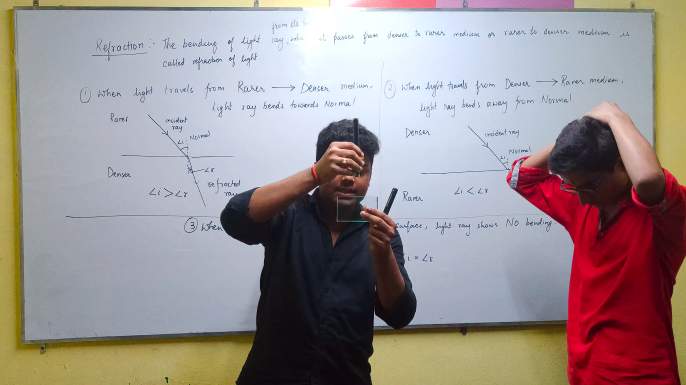 from its
Refraction :- The bending of light ray, when it passes from denser to rarer medium or rarer to denser medium is
called refraction of light
① When light travels from Rarer → Denser medium.
light ray bends towards Normal
Rarer
incident
ray
∠i
Normal
Denser
∠r
∠i > ∠r
refracted
ray
② When light travels from Denser → Rarer medium,
light ray bends away from Normal
Denser
incident ray
∠i
Normal
Rarer
∠i < ∠r
③ When surface, light ray shows No bending
i = ∠r